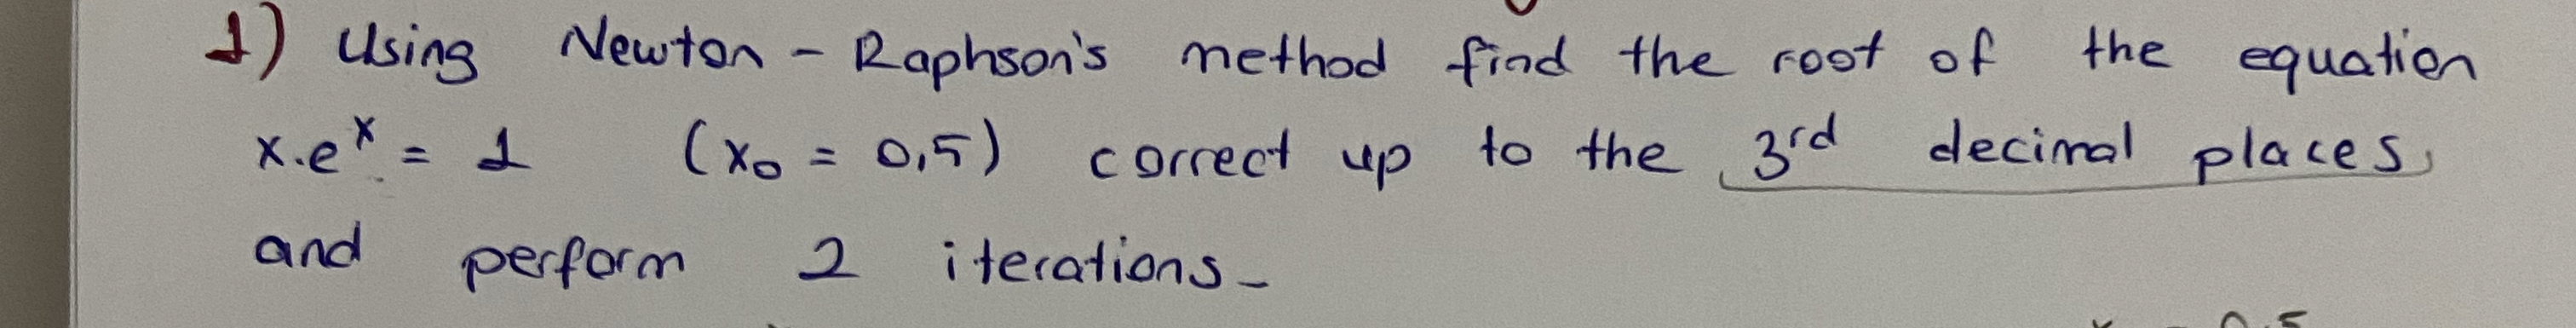 1) Using Newton - Raphson's method find the root of the equation
x.eˣ = 1 (x₀ = 0,5) correct up to the 3rd decimal places
and perform 2 iterations-